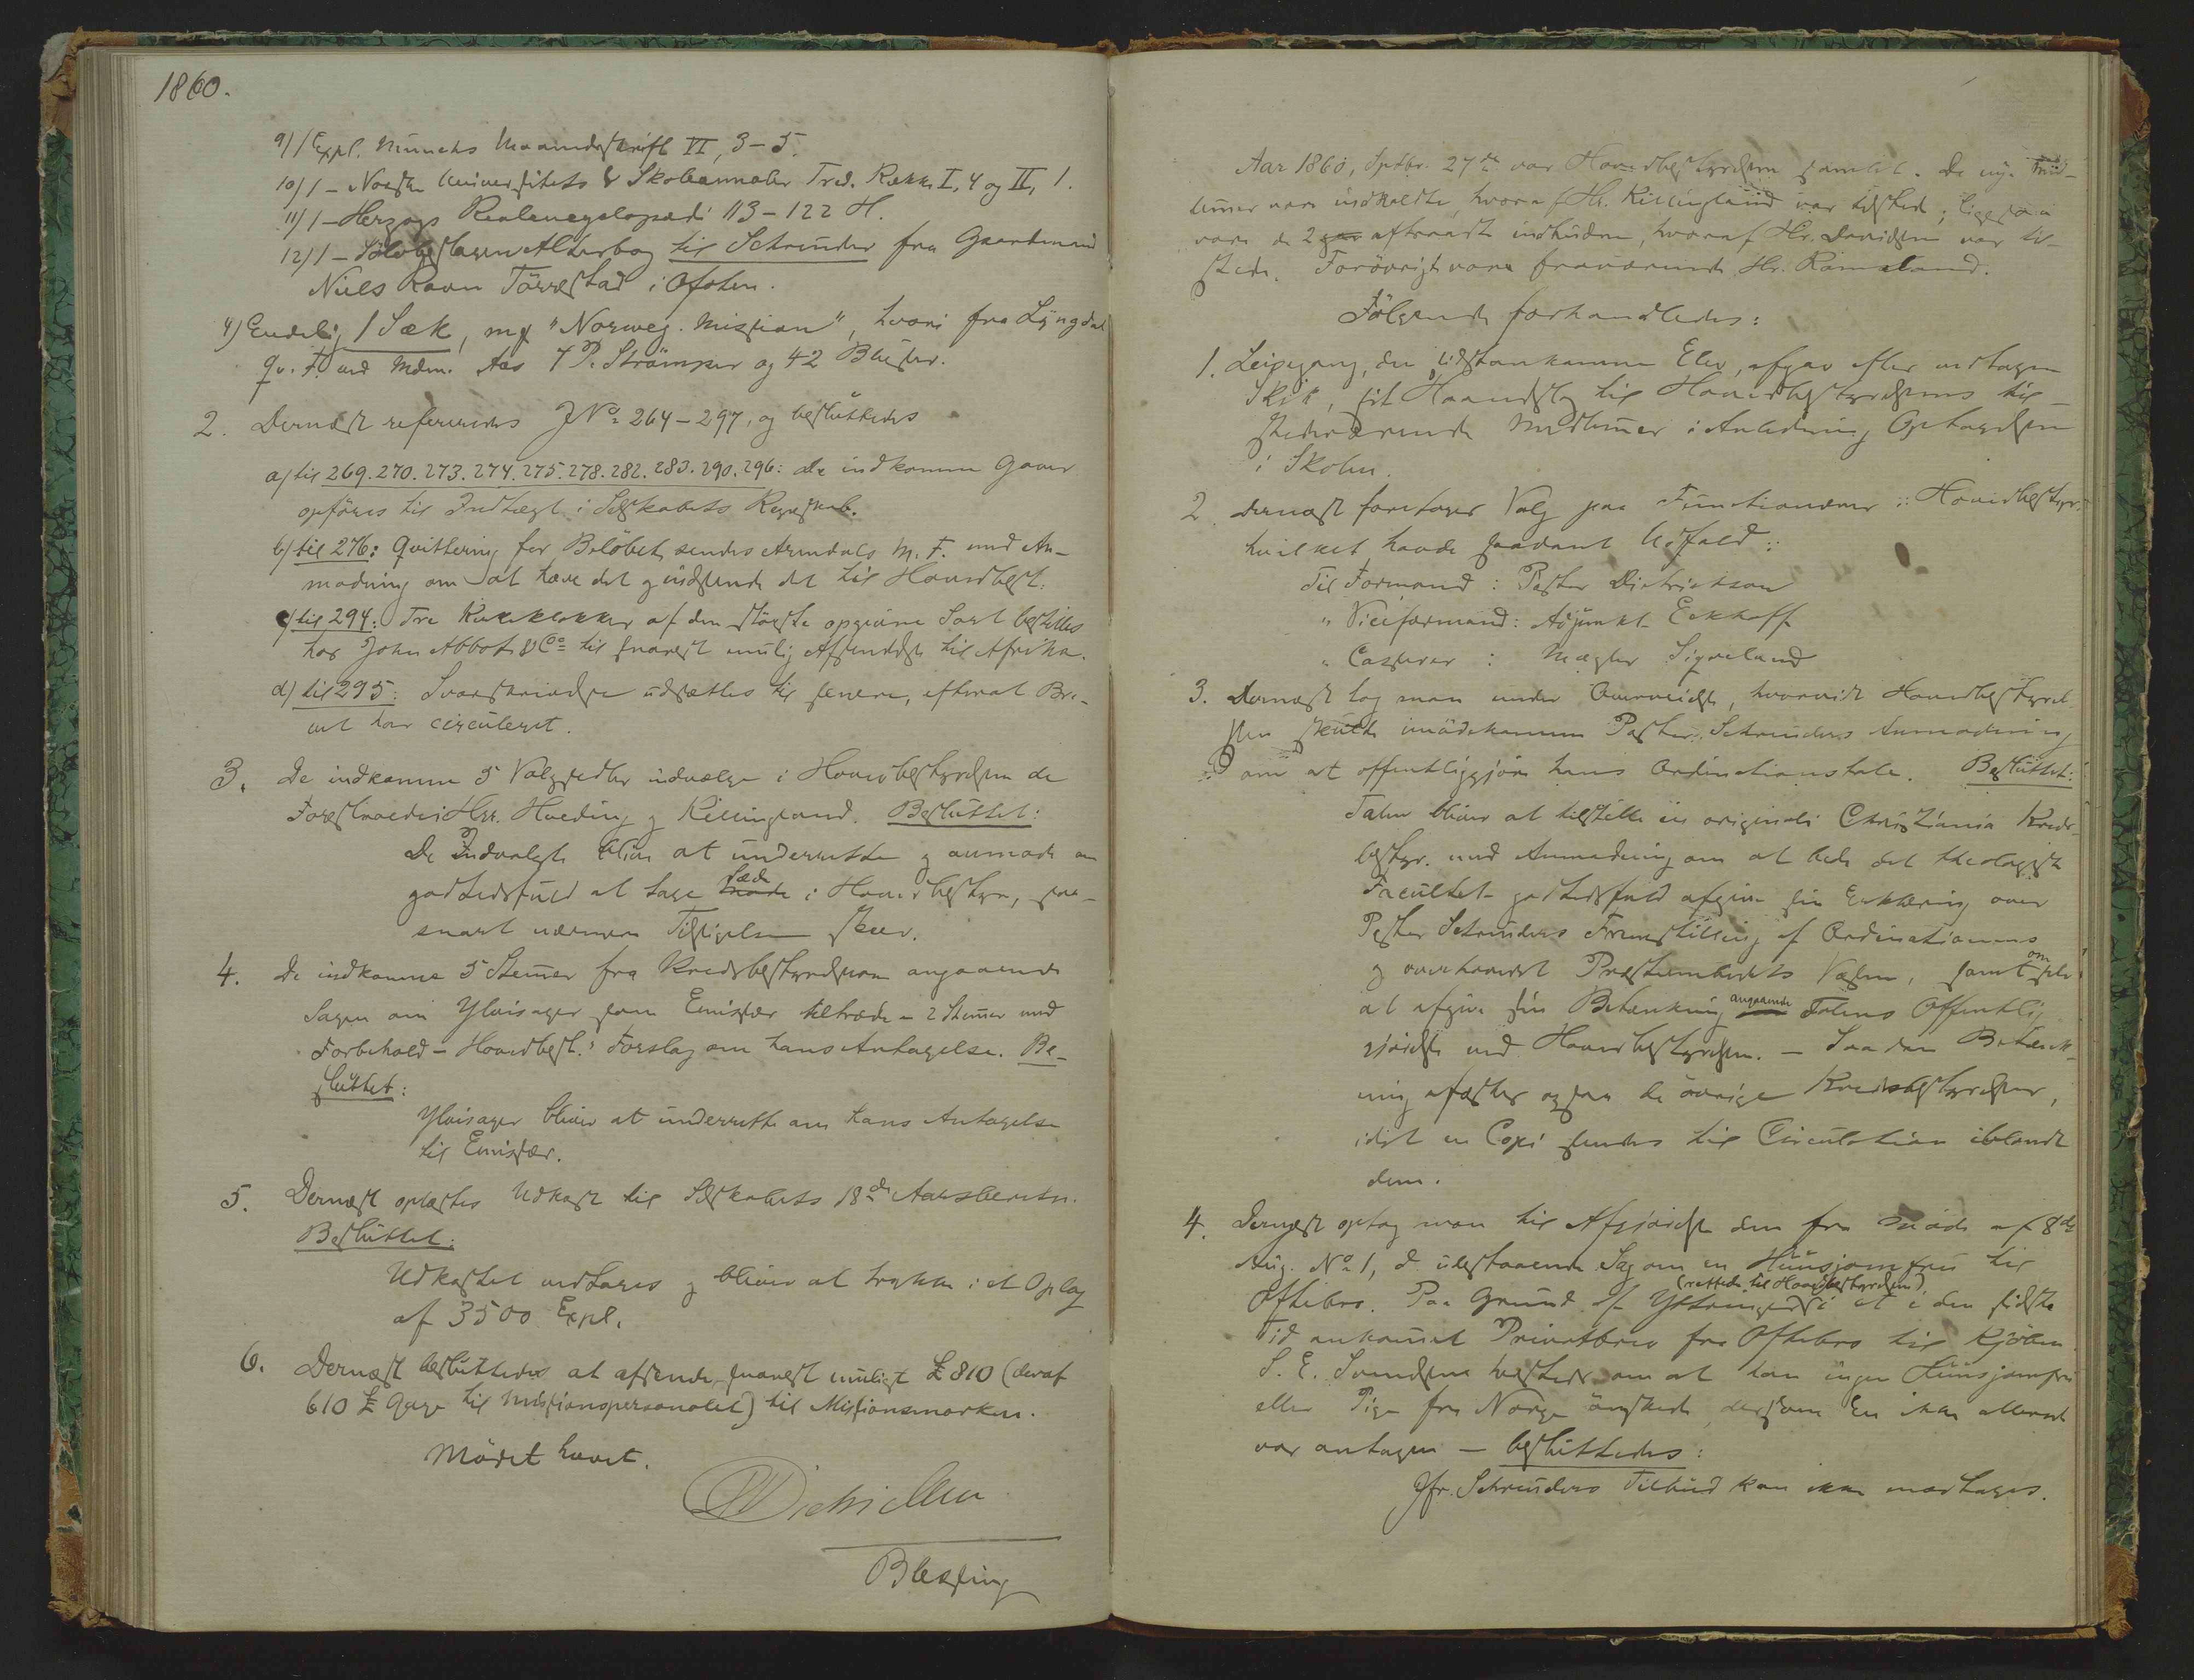 1860.
9) 1 Expl. Munchs Maanedsskrift VI, 3-5.
10) 1 - Norske Universitets & Skoleannaler Tred. Række I, 4 og II, 1.
11) 1 - Herzogs Realencyclopædi 113-122 H.
12) 1 - Sölvbeslagen Alterbog til Schreuder fra Gaardmand
Niels Ravn Törrestad i Ofoten.
4) Endelig 1 Sæk, mq "Norweg. Mission", hvori fra Lyngdal
Qv. F. ved Mdm. Aas 7 P. Strömper og 42 Bluser.
2. Dernæst refereredes JNo 264-297, og besluttedes
a) til 269. 270. 273. 274. 275. 278. 282. 283. 290. 296: de indkomne Gaver
opföres til Indtægt i Selskabets Regnskab.
b) til 276: Qvittering for Belöbet sendes Arendals M. F. med An-
modning om at hæve det og indsende det til Hovedbest:
c) til 294: Tre Kirkeklokker af den störste opgivne Sort bestilles
hos John Abbot & Co til snarest mulig Afsendelse til Afrika.
d) til 295: Svarskrivelse udsættes til senere, efterat Bre-
vet har circuleret.
3. De indkomne 5 Valgsedler udvælge i Hovedbestyrelsen de
Foreslaaede: Hrr. Hveding og Killingland. Besluttet:
De Indvalgte blive at underrette og anmode om
godhedsfuld at tage Sæde i Hovedbestyr, saa-
snart nærmere Tilsigelse skeer.
4. De indkomne 5 Stemmer fra Kredsbestyrelserne angaaende
Sagen om Ylvisager som Emissær tiltræde - 2 Stemmer med
Forbehold - Hovedbest.s Forslag om hans Antagelse. Be-
sluttet:
Ylvisager bliver at underrette om hans Antagelse
til Emissær.
5. Dernæst oplæstes Udkast til Selskabets 18de Aarsberetn.
Besluttet:
Udkastet vedtages og bliver at trykke i et Oplag
af 3500 Expl.
6. Dernæst besluttedes at afsende snarest muligt £ 810 (deraf
610 £ Gage til Missionspersonalet) til Missionsmarken.
Mödet hævet.
Dietrichson
Blessing
Aar 1860, Septbr. 27de var Hovedbestyrelsen samlet. De nye Med-
lemmer vare indkaldte, hvoraf Hr. Killingland var tilstede; ligesaa
vare de 2 aftraadte indbudne, hvoraf Hr. Davidsen var til-
stede. Forövrigt vare fraværende Hr. Rameland.
Fölgende forhandledes:
1. Leipegang, den sidstankomne Elev, afgav efter vedtagen
Skik, sit Haandslag til Hovedbestyrelsens til-
stedeværende Medlemmer i Anledning Optagelsen
i Skolen.
2. Dernæst foretages Valg paa Functionærer i Hovedbestyr.
hvilket havde saadant Udfald:
Til Formand: Pastor Dietrichson
" Viceformand: Adjunkt Eckhoff
" Casserer: Mægler Sigveland
3. Dernæst tog man under Overveielse, hvorvidt Hovedbestyrel-
sen skulde imödekomme Pastor Schreuders Anmodning
om at offentliggjöre hans Ordinationstale. Besluttet:
Talen bliver at tilstille in originali Christiania Kreds-
bestyr. med Anmodning om at bede det theologiske
Facultet godhedsfuld afgive sin Erklæring over
Pastor Schreuders Fremstilling af Ordinationens
og overhovedet Præsteembedets Væsen, samt om selv
at afgive sin Betænkning angaaende Talens Offentlig-
gjörelse ved Hovedbestyrelsen. - Saadan Betænk-
ning afæskes ogsaa de övrige Kredsbestyrelser,
idet en Copi sendes til Circulation iblandt
dem.
4. Dernæst optog man til Afgjörelse den fra Möde af 8de
Aug. No 1, d. udestaaende Sag om en Huusjomfru til
Oftebro. Paa Grund af Yttringer (rettede til Hovedbestyrelsen) i et i den sidste
Tid ankommet Privatbrev fra Oftebro til Kjöbm.
S. E. Svendsen om at han ingen Huusjomfru
eller Pige fra Norge önskede, dersom En ikke allerede
var antagen - besluttedes:
Jfr. Schreuders Tilbud kan ikke modtages.